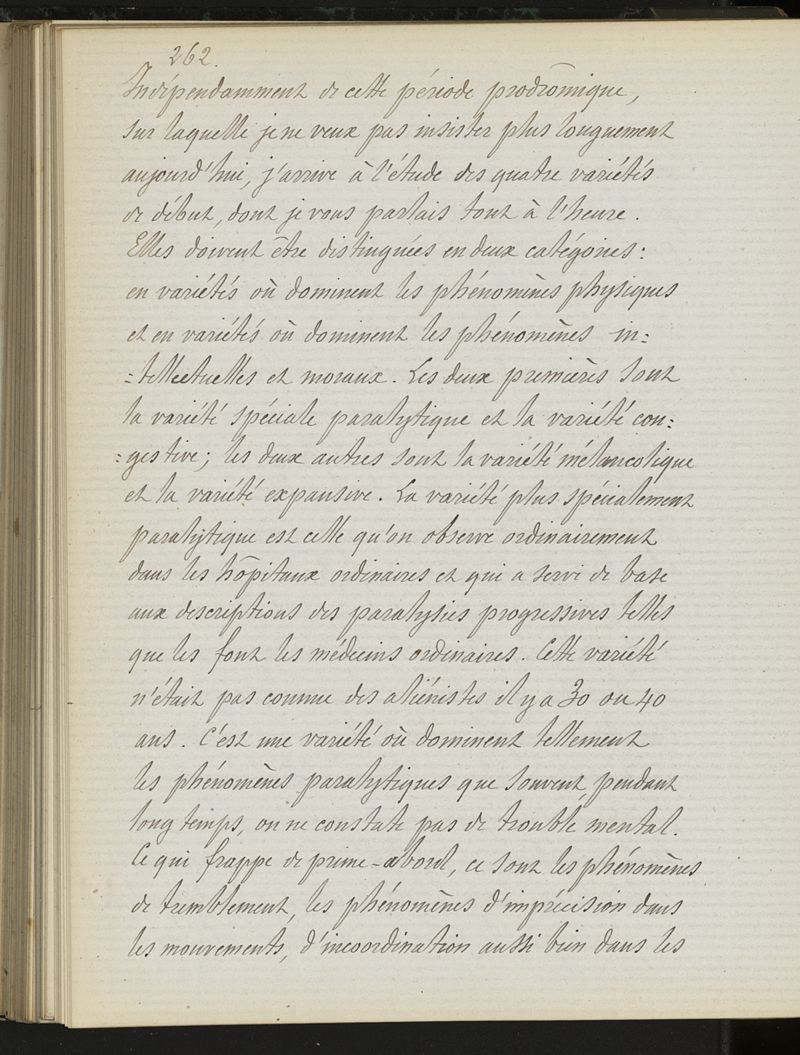 262.
Indépendamment de cette période prodrômique,
sur laquelle je ne veux pas insister plus longuement
aujourd'hui, j'arrive à l'étude des quatre variétés
de début, dont je vous parlais tout à l'heure.
Elles doivent être distinguées en deux catégories:
en variétés où dominent les phénomènes physiques
et en variétés où dominent les phénomènes in=
=tellectuelles et moraux. Les deux premières sont
la variété spéciale paralytique et la variété con=
=gestive; les deux autres sont la variété mélancolique
et la variété expansive. La variété plus spécialement
paralytique est celle qu'on observe ordinairement
dans les hôpitaux ordinaires et qui a servi de base
aux descriptions des paralysies progressives telles
que les font les médecins ordinaires. Cette variété
n'était pas connue des aliénistes il y a 30 ou 40
ans. C'est une variété où dominent tellement
les phénomènes paralytiques que souvent, pendant
long temps, on ne constate pas de trouble mental.
Ce qui frappe de prime-abord, ce sont les phénomènes
de tremblement, les phénomènes d'imprécision dans
les mouvements, d'incoordination aussi bien dans les